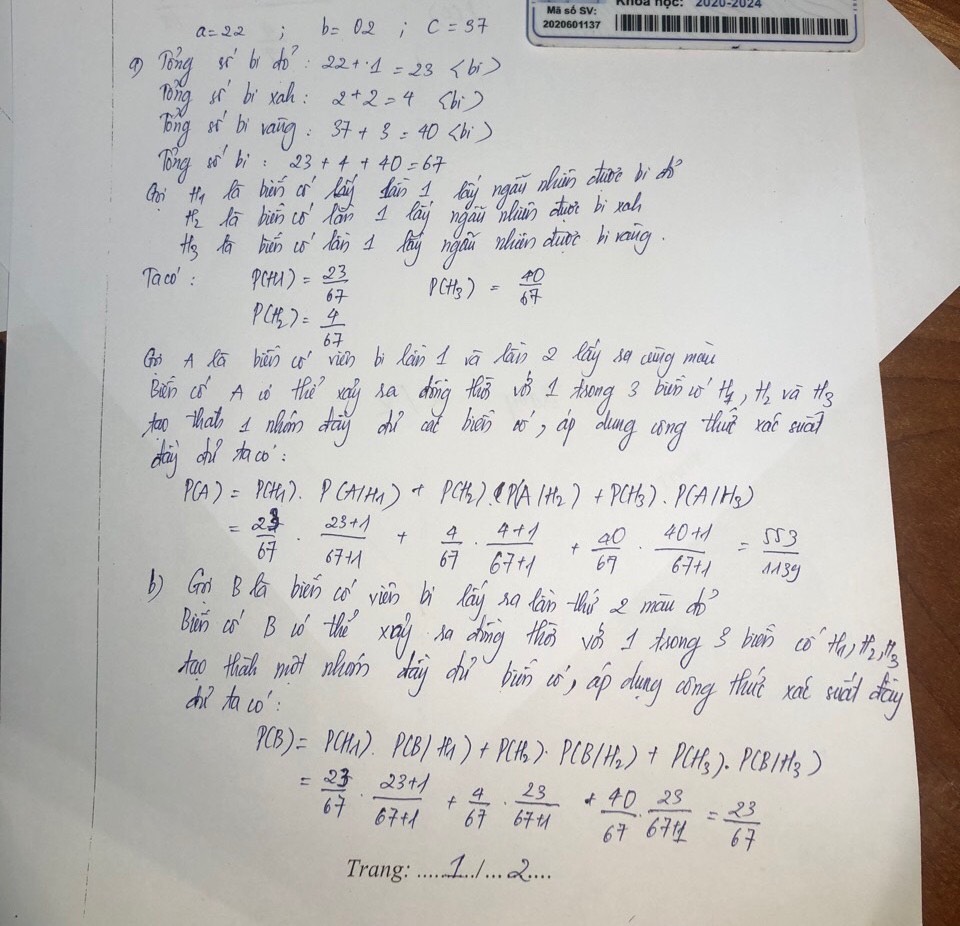 Khóa học: 2020-2024
Mã số SV:
2020601137
a=22 ; b=02 ; c=37
a) Tổng số bi đỏ : 22+1=23 <bi>
Tổng số bi xah : 2+2=4 <bi>
Tổng số bi vàng : 37+3=40 <bi>
Tổng số bi : 23+4+40=67
Gọi H1 là biến cố lấy lần 1 lấy ngẫu nhiên được bi đỏ
H2 là biến cố lần 1 lấy ngẫu nhiên được bi xah
H3 là biến cố lần 1 lấy ngẫu nhiên được bi vàng.
Ta có : P(H1) = 23/67 P(H3) = 40/67
P(H2) = 4/67
Gọi A là biến cố viên bi lần 1 và lần 2 lấy ra cùng màu
Biến cố A có thể xảy ra đồng thời với 1 trong 3 biến cố H1, H2 và H3
tạo thah 1 nhóm đầy đủ các biến cố, áp dụng công thức xác suất
đầy đủ ta có :
P(A) = P(H1). P(A/H1) + P(H2). P(A/H2) + P(H3). P(A/H3)
= 23/67 . 23+1/67+1 + 4/67 . 4+1/67+1 + 40/67 . 40+1/67+1 = 553/1139
b) Gọi B là biến cố viên bi lấy ra lần thứ 2 màu đỏ
Biến cố B có thể xảy ra đồng thời với 1 trong 3 biến cố H1, H2, H3
tạo thàh một nhóm đầy đủ biến cố, áp dụng công thức xác suất đầy
đủ ta có :
P(B) = P(H1). P(B/H1) + P(H2). P(B/H2) + P(H3). P(B/H3)
= 23/67 . 23+1/67+1 + 4/67 . 23/67+1 + 40/67 . 23/67+1 = 23/67
Trang: .....1../...2....